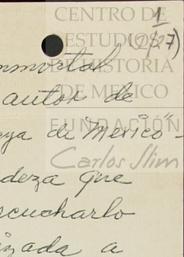 CENTRO DE
ESTUDIOS
DE HISTORIA
DE MEXICO
FUNDACIÓN
Carlos Slim
1
inmortal
autor de
aya de Mexico"-
deza que
scucharlo
inada a